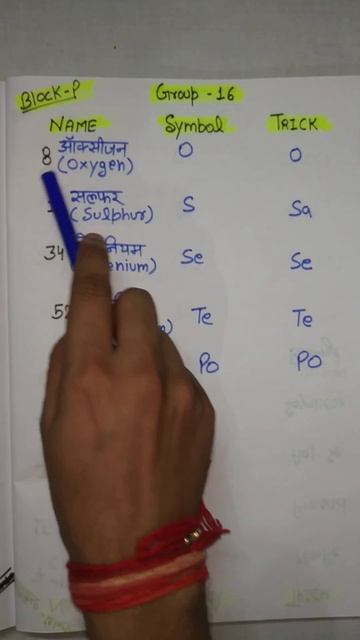 BLOCK-P Group-16
NAME Symbol TRICK
8 ऑक्सीजन O O
(Oxygen)
सल्फर
(Sulphur) S Sa
34 Se Se
Te Te
Po PO